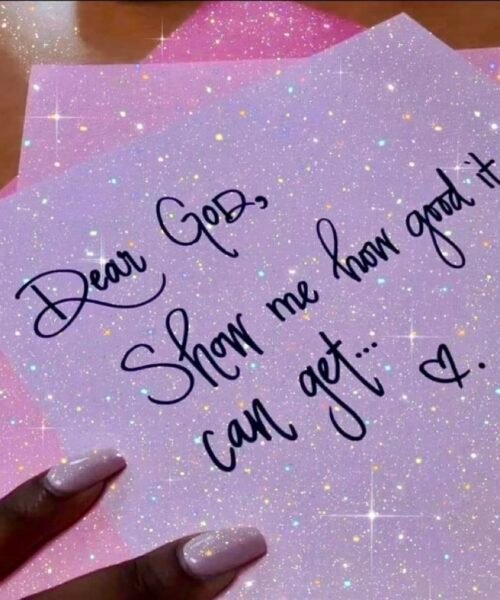 Dear GOD,
Show me how good it
can get... ♡.